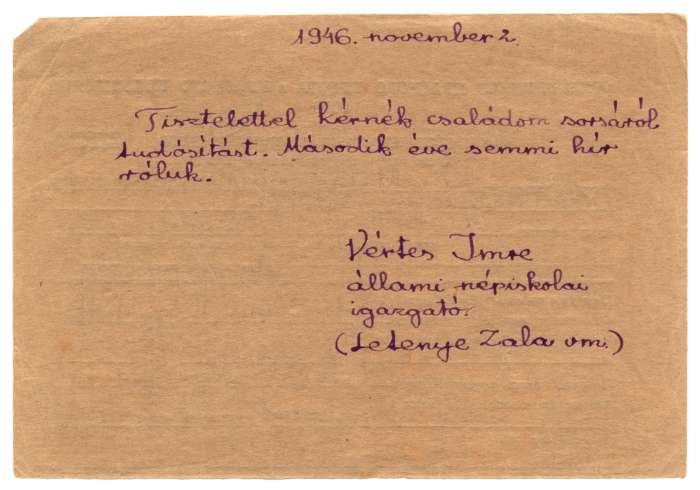 1946. november 2.
Tisztelettel kérnék családom sorsáról
tudósítást. Második éve semmi hír
róluk.
Vértes Imre
állami népiskolai
igazgató.
(Letenye Zala vm.)